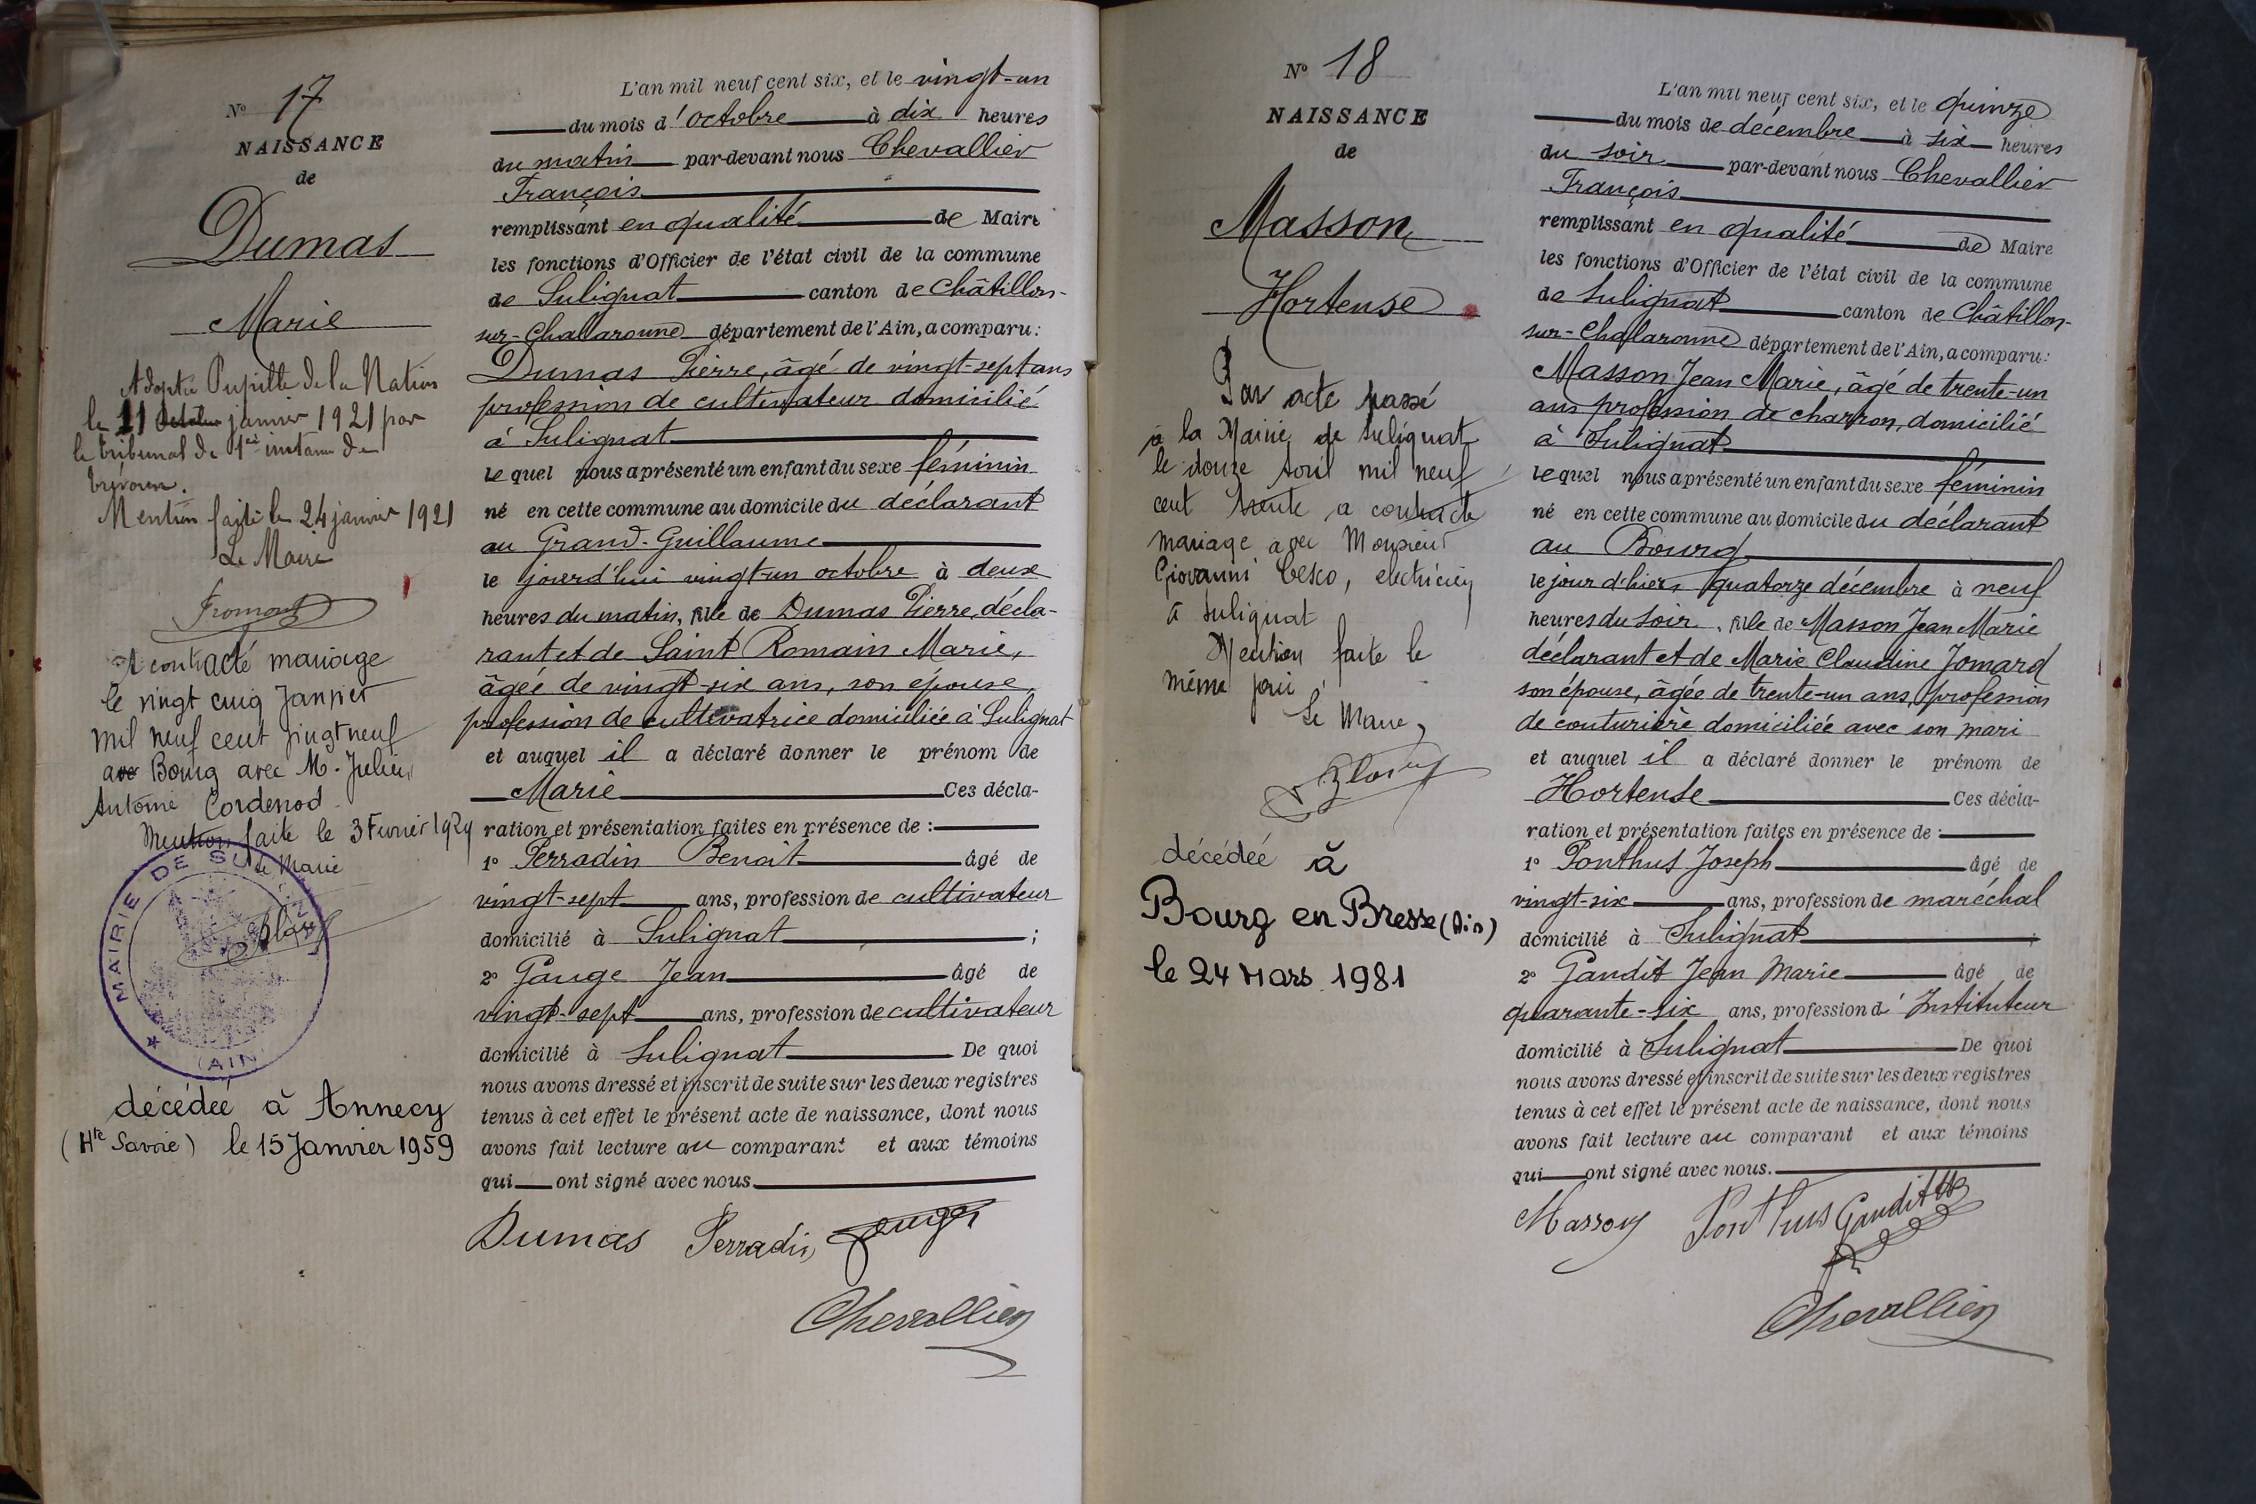 N° 17
NAISSANCE
de
Dumas
Marie
Adoptée Pupille de la Nation
le 11 octobre janvier 1921 par
le tribunal de 1ère instance de
Trévoux.
Mention faite le 24 janvier 1921
Le Maire
Fromont
A contracté mariage
le vingt cinq Janvier
mil neuf cent vingt neuf
ave Bourg avec M. Julien
Antoine Cordenod
Mention faite le 3 Fevrier 1929
Le Maire
MAIRIE DE SULIGNAT
(AIN)
décédée à Annecy
(Hte Savoie) le 15 Janvier 1959
L'an mil neuf cent six, et le vingt-un
du mois d'octobre à dix heures
du matin par-devant nous Chevallier
François
remplissant en qualité de Maire
les fonctions d'Officier de l'état civil de la commune
de Sulignat canton de Châtillon-
sur-Chalaronne département de l'Ain, a comparu:
Dumas Pierre, âgé de vingt-sept ans
profession de cultivateur domicilié
à Sulignat
lequel nous a présenté un enfant du sexe féminin
né en cette commune au domicile du déclarant
au Grand-Guillaume
le jourd'hui vingt-un octobre à deux
heures du matin, fille de Dumas Pierre, décla-
rant et de Saint Romain Marie,
âgée de vingt-six ans, son épouse,
profession de cultivatrice domiciliée à Sulignat
et auquel il a déclaré donner le prénom de
Marie Ces décla-
ration et présentation faites en présence de :
1° Perradin Benoit âgé de
vingt-sept ans, profession de cultivateur
domicilié à Sulignat ;
2° Gauge Jean âgé de
vingt-sept ans, profession de cultivateur
domicilié à Sulignat De quoi
nous avons dressé et inscrit de suite sur les deux registres
tenus à cet effet le présent acte de naissance, dont nous
avons fait lecture au comparant et aux témoins
qui ont signé avec nous
Dumas Perradin Gauge
Chevallier
N° 18
NAISSANCE
de
Masson
Hortense
Par acte passé
à la Mairie de Sulignat
le douze Avril mil neuf
cent trente a contracté
mariage avec Monsieur
Giovanni Cesco, electricien
à Sulignat
Mention faite le
même jour
Le Maire,
décédée à
Bourg en Bresse (Ain)
le 24 Mars 1981
L'an mil neuf cent six, et le quinze
du mois de décembre à six heures
du soir par-devant nous Chevallier
François
remplissant en qualité de Maire
les fonctions d'Officier de l'état civil de la commune
de Sulignat canton de Châtillon-
sur-Chalaronne département de l'Ain, a comparu:
Masson Jean Marie, âgé de trente-un
ans profession de charron, domicilié
à Sulignat
lequel nous a présenté un enfant du sexe féminin
né en cette commune au domicile du déclarant
au Bourg
le jour d'hier, quatorze décembre à neuf
heures du soir, fille de Masson Jean Marie
déclarant et de Marie Claudine Jomard
son épouse, âgée de trente-un ans, profession
de couturière domiciliée avec son mari
et auquel il a déclaré donner le prénom de
Hortense Ces décla-
ration et présentation faites en présence de :
1° Ponthus Joseph âgé de
vingt-six ans, profession de maréchal
domicilié à Sulignat ;
2° Gaudit Jean Marie âgé de
quarante-six ans, profession d'Instituteur
domicilié à Sulignat De quoi
nous avons dressé et inscrit de suite sur les deux registres
tenus à cet effet le présent acte de naissance, dont nous
avons fait lecture au comparant et aux témoins
qui ont signé avec nous.
Masson Ponthus Gaudit
Chevallier